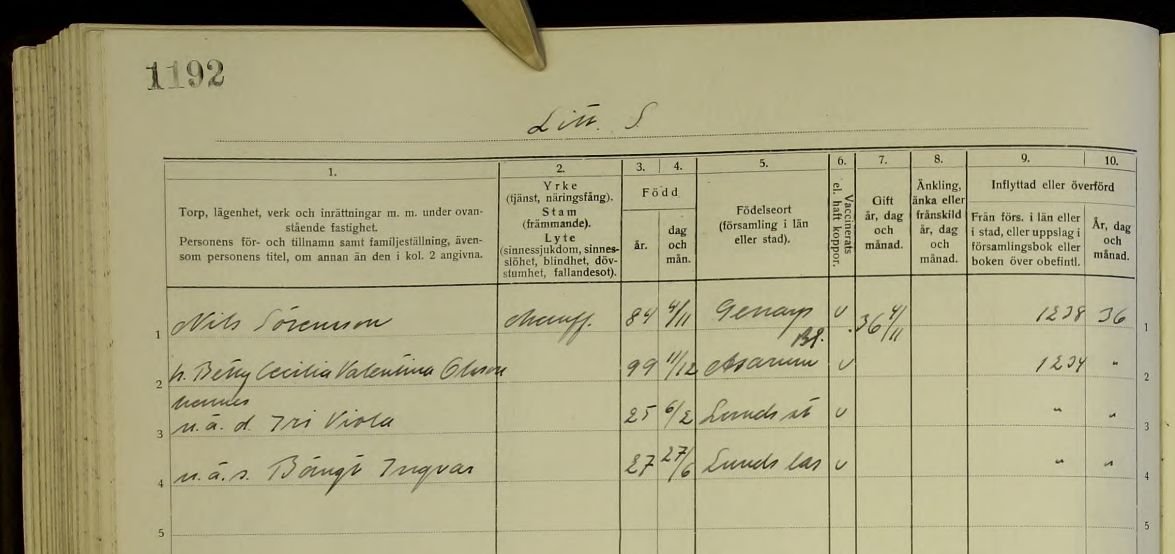 1192
Litt. S
1. 2. 3. 4. 5. 6. 7. 8. 9. 10.
Torp, lägenhet, verk och inrättningar m. m. under ovan-
stående fastighet.
Personens för- och tillnamn samt familjeställning, även-
som personens titel, om annan än den i kol. 2 angivna.
Yrke
(tjänst, näringsfång).
Stam
(främmande).
Lyte
(sinnessjukdom, sinnes-
slöhet, blindhet, döv-
stumhet, fallandesot).
Född
år.
dag
och
mån.
Födelseort
(församling i län
eller stad).
Vaccinerats
el. haft koppor.
Gift
år, dag
och
månad.
Änkling,
änka eller
frånskild
år, dag
och
månad.
Inflyttad eller överförd
Från förs. i län eller
i stad, eller uppslag i
församlingsbok eller
boken över obefintl.
År, dag
och
månad.
1 Nils Sörensson chauff. 84 4/11 Genarp v 36 4/11 1238 36 1
Bl.
2 h. Betty Cecilia Valentina Olsson 99 11/12 Asarum v 1234 " 2
hennes
3 u.ä.d. Iri Viola 25 6/2 Lunds st v " " 3
4 u.ä.s. Bängt Ingvar 27 27/6 Lunds las v " " 4
5 5